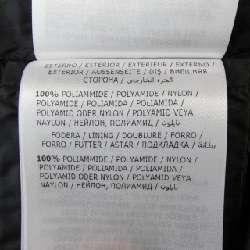 ESTERNO / EXTERIOR / EXTERIEUR / EXTERNO /
EXTERIOR / AUSSENSEITE / DIŞ / ВНЕШНЯЯ
СТОРОНА /
100% POLIAMMIDE / POLYAMIDE / NYLON /
POLYAMIDE / POLIAMIDA / POLIAMIDA /
POLYAMID ODER NYLON / POLYAMID VEYA
NAYLON / НЕЙЛОН, ПОЛИАМИД / نايلون
FODERA / LINING / DOUBLURE / FORRO /
FORRO / FUTTER / ASTAR / ПОДКЛАДКА / بطانة
100% POLIAMMIDE / POLYAMIDE / NYLON /
POLYAMIDE / POLIAMIDA / POLIAMIDA /
POLYAMID ODER NYLON / POLYAMID VEYA
NAYLON / НЕЙЛОН, ПОЛИАМИД / نايلون